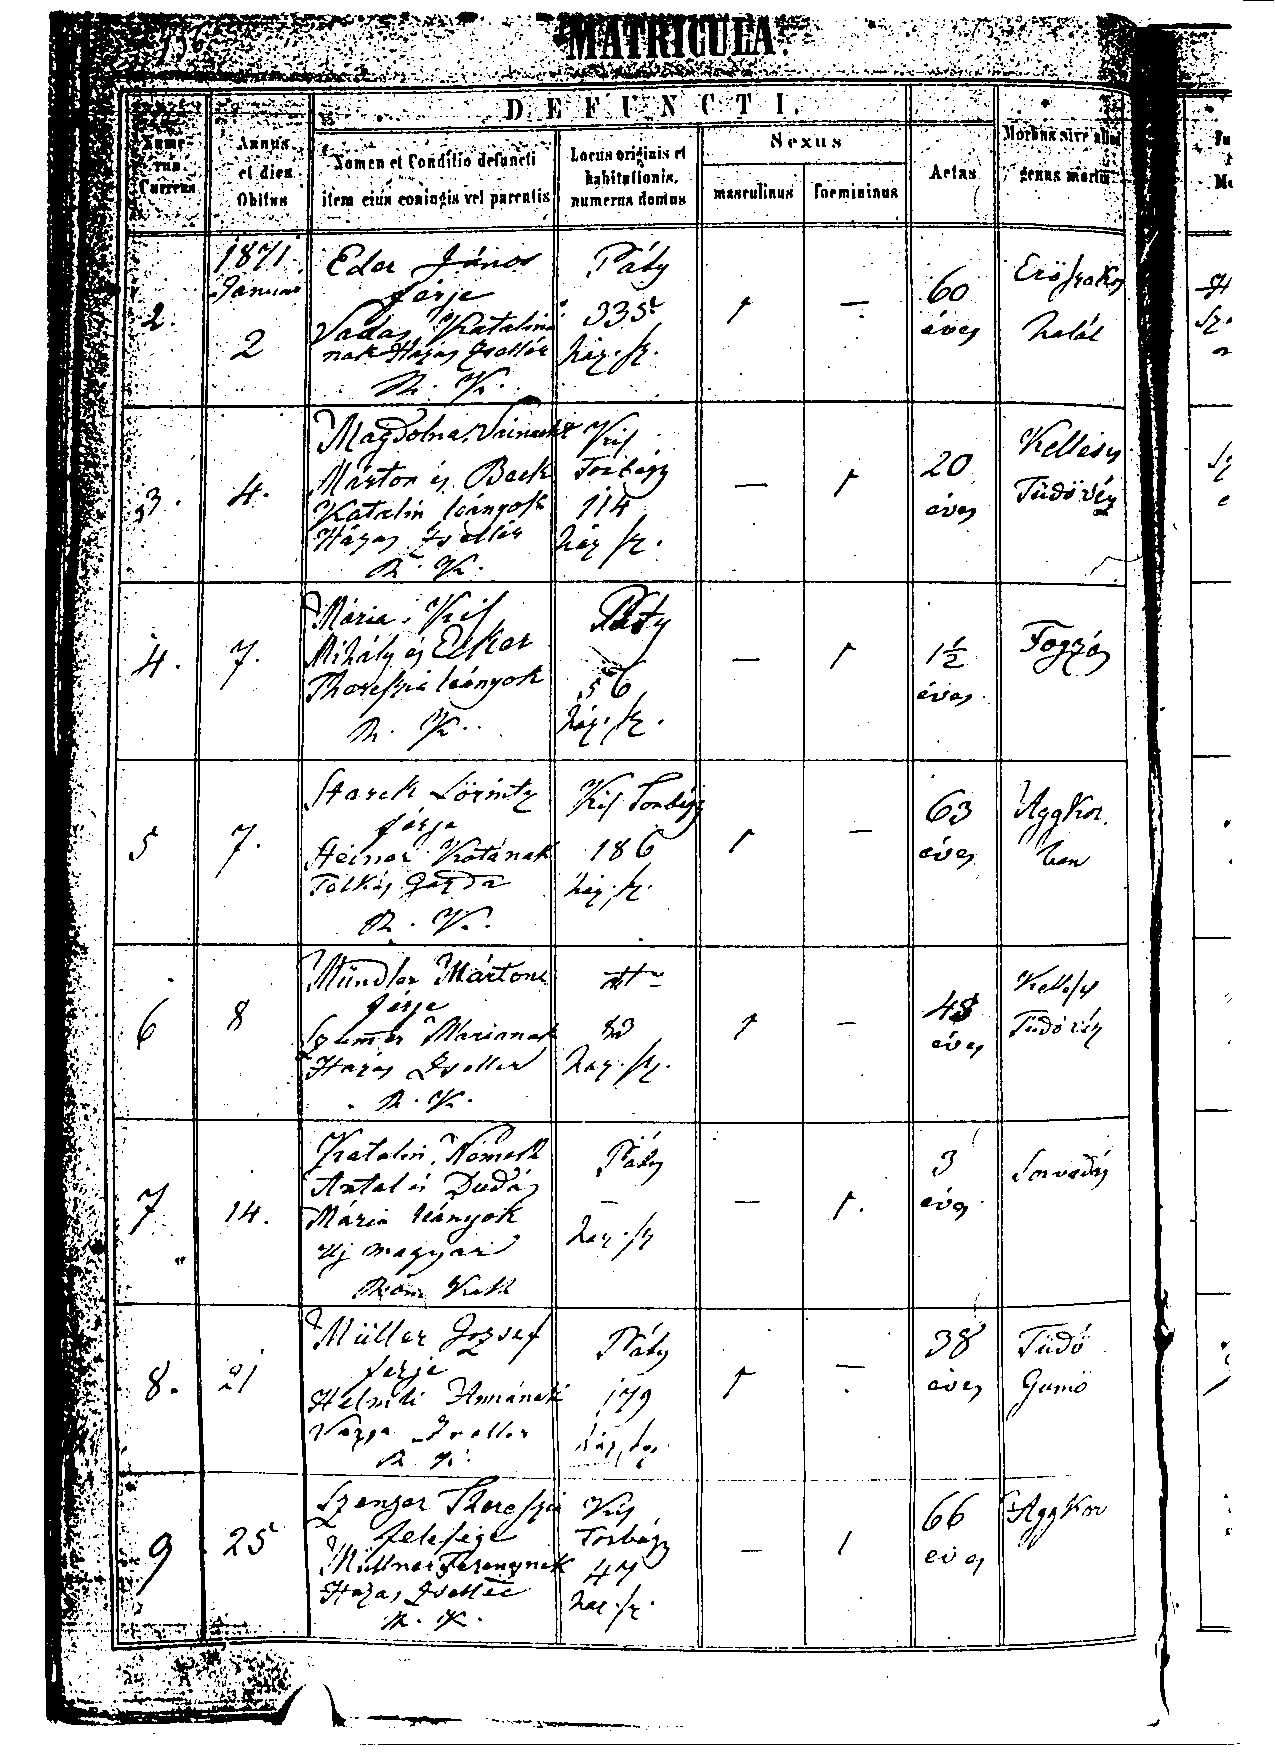 MATRICULA.
DEFUNCTI.
Nume-
rus
Currens
Annus
et dies
Obitus
Nomen et Conditio defuncti
item eius coniugis vel parentis
Locus originis et
habitationis,
numerus domus
Nexus
masculinus
foemininus
Aetas
Morbus sive aliud
genus mortis
2.
1871
Januar
2
Eder János
férje
Vadas Katalin
nak Házas Zsellér
R. K.
Páty
335
ház. sz.
1
—
60
éves
Erőszakos
halál
3.
4.
Magdolna,
Márton és Beck
Katalin leányok
Házas Zsellér
R. K.
Kis
Torbágy
114
ház sz.
—
1
20
éves
Tüdővész
4.
7.
Mária, Kis
Mihály és Ecker
Thereszia leányok
R. K.
Páty
56
ház. sz.
—
1
1½
éves
Fogzás
5
7.
Starck Lőrincz
férje
Heiner Katának
Telkes Gazda
R. K.
Kis Torbágy
186
ház. sz.
1
—
63
éves
Aggkor
ban
6
8
Mündler Márton
férje
Mariának
Házas Zseller
R. K.
ház. sz.
1
—
48
éves
Tüdővész
7
14.
Katalin, Németh
Antal és Dudás
Mária leányok
Uj magyar
Róm Kath
Páty
—
ház. sz
—
1.
3
éves
Sorvadás
8.
21
Müller József
férje
Annának
Zseller
R. K.
Páty
179
ház. sz.
1
—
38
éves
Tüdő
Gumő
9
25
Szenger Thereszia
felesége
Müllner Ferencznek
Házas Zsellér
R. K.
Kis
Torbágy
47
ház. sz.
—
1
66
éves
Aggkor